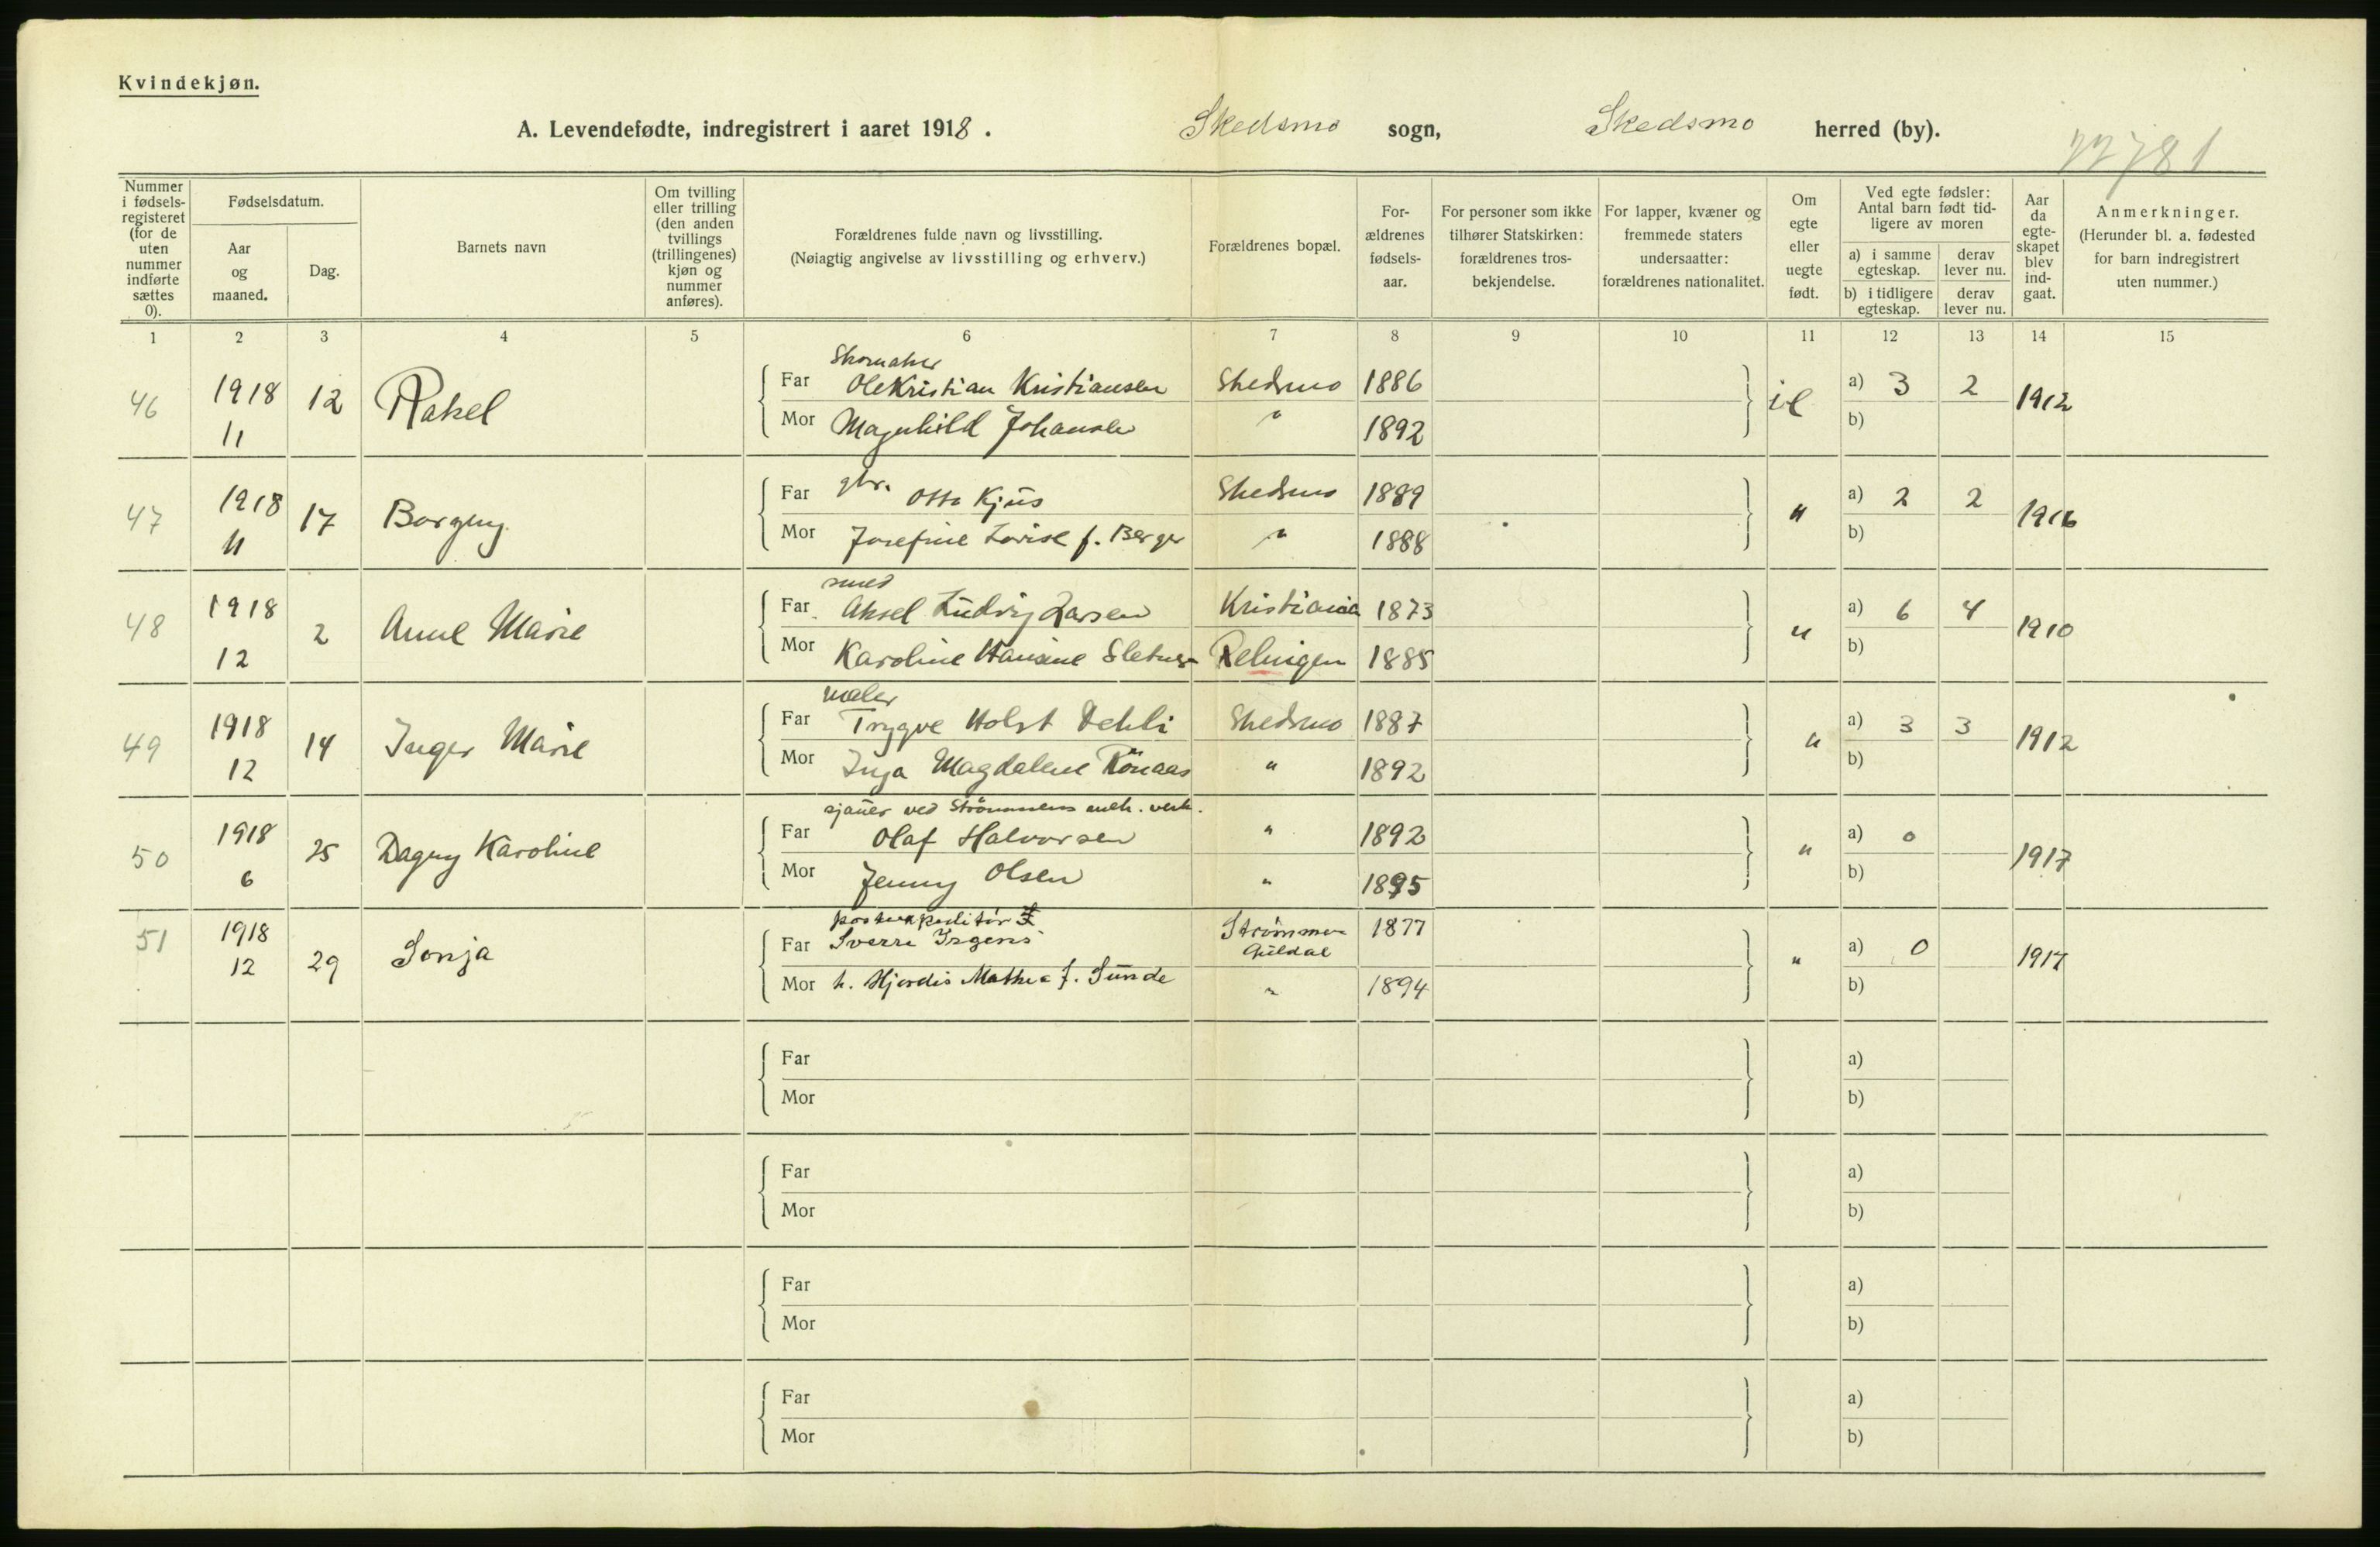 Kvindekjøn.
A. Levendefødte, indregistrert i aaret 1918. Skedsmo sogn, Skedsmo herred (by).
22781
Nummer i fødsels-registeret (for de uten nummer indførte sættes 0).
Fødselsdatum.
Aar og maaned.
Dag.
Barnets navn
Om tvilling eller trilling (den anden tvillings (trillingenes) kjøn og nummer anføres).
Forældrenes fulde navn og livsstilling.
(Nøiagtig angivelse av livsstilling og erhverv.)
Forældrenes bopæl.
For-ældrenes fødsels-aar.
For personer som ikke tilhører Statskirken: forældrenes tros-bekjendelse.
For lapper, kvæner og fremmede staters undersaatter: forældrenes nationalitet.
Om egte eller uegte født.
Ved egte fødsler: Antal barn født tid-ligere av moren
a) i samme egteskap.
derav lever nu.
b) i tidligere egteskap.
derav lever nu.
Aar da egte-skapet blev ind-gaat.
Anmerkninger.
(Herunder bl. a. fødested for barn indregistrert uten nummer.)
1 2 3 4 5 6 7 8 9 10 11 12 13 14 15
Skomaker
46 1918 12 Rakel Far Ole Kristian Kristiansen Skedsmo 1886 a) 3 2 1912
11 Mor Magnhild Johansen " 1892 b)
gbr.
47 1918 17 Borgny Far Otto Kjus Skedsmo 1889 " a) 2 2 1916
11 Mor Josefine Lovise f. Berger " 1888 b)
smed
48 1918 2 Anne Marie Far Aksel Ludvig Larsen Kristiania 1873 " a) 6 4 1910
12 Mor Karoline Hansine Sletner Relingen 1885 b)
maler
49 1918 14 Inger Marie Far Trygve Holst Dehli Skedsmo 1887 " a) 3 3 1912
12 Mor Inga Magdalene Rönaas " 1892 b)
sjauer ved Strömmens mek. verk.
50 1918 25 Dagny Karoline Far Olaf Halvorsen " 1892 " a) 0 1917
6 Mor Jenny Olsen " 1895 b)
postexpeditör
51 1918 29 Sonja Far Sverre Irgens Strömmen Guldal 1877 " a) 0 1917
12 Mor h. Hjördis Mathea f. Sunde " 1894 b)
Far a)
Mor b)
Far a)
Mor b)
Far a)
Mor b)
Far a)
Mor b)